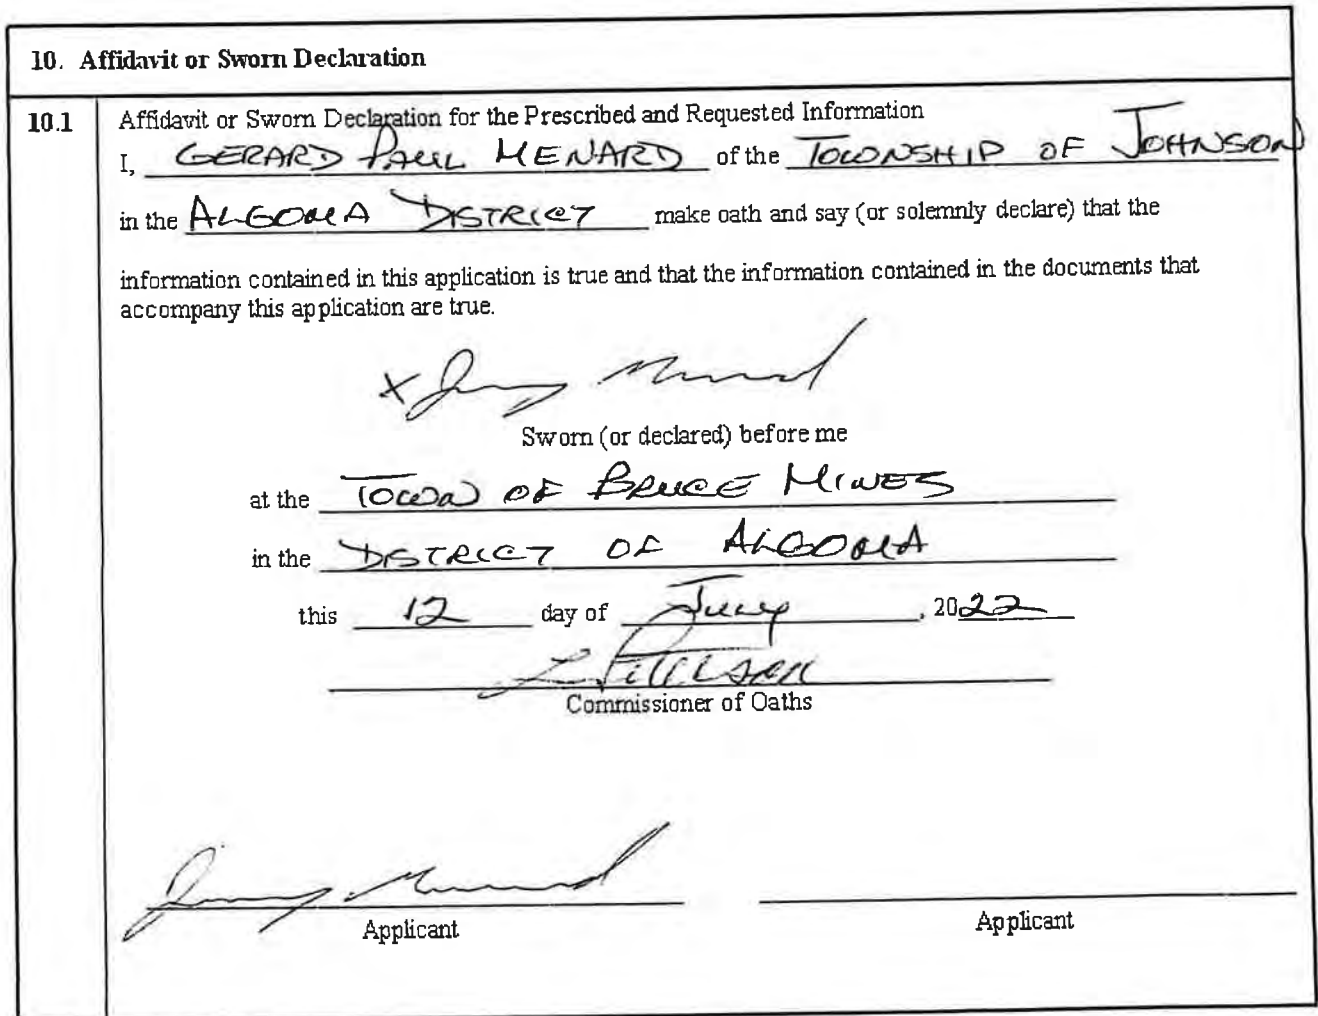 10. Affidavit or Sworn Declaration
10.1 Affidavit or Sworn Declaration for the Prescribed and Requested Information
I, GERARD PAUL MENARD of the TOWNSHIP OF JOHNSON
in the ALGOMA DISTRICT make oath and say (or solemnly declare) that the
information contained in this application is true and that the information contained in the documents that
accompany this application are true.
X
Sworn (or declared) before me
at the TOWN OF BRUCE MINES
in the DISTRICT OF ALGOMA
this 12 day of July, 2022
Commissioner of Oaths
Applicant Applicant